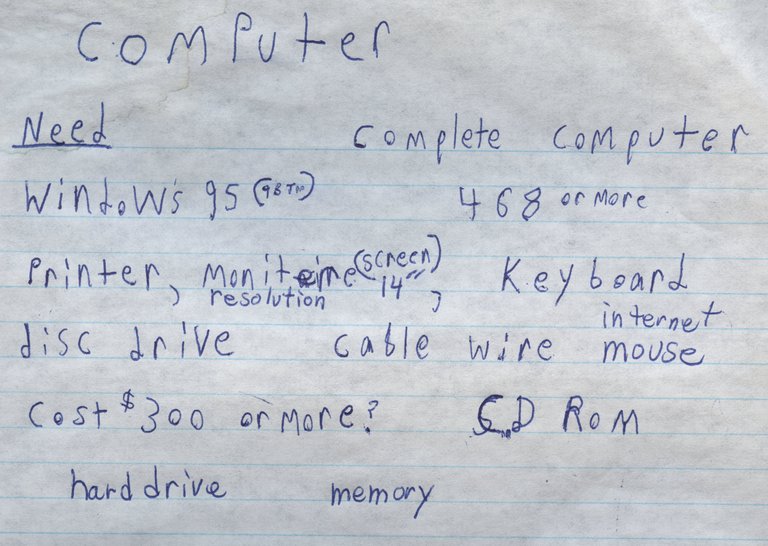 Computer
Need complete computer
Windows 95 (98 TM) 468 or more
Printer, moniteire (screen) 14", Keyboard
resolution internet
disc drive cable wire mouse
Cost $300 or more? CD ROM
hard drive memory